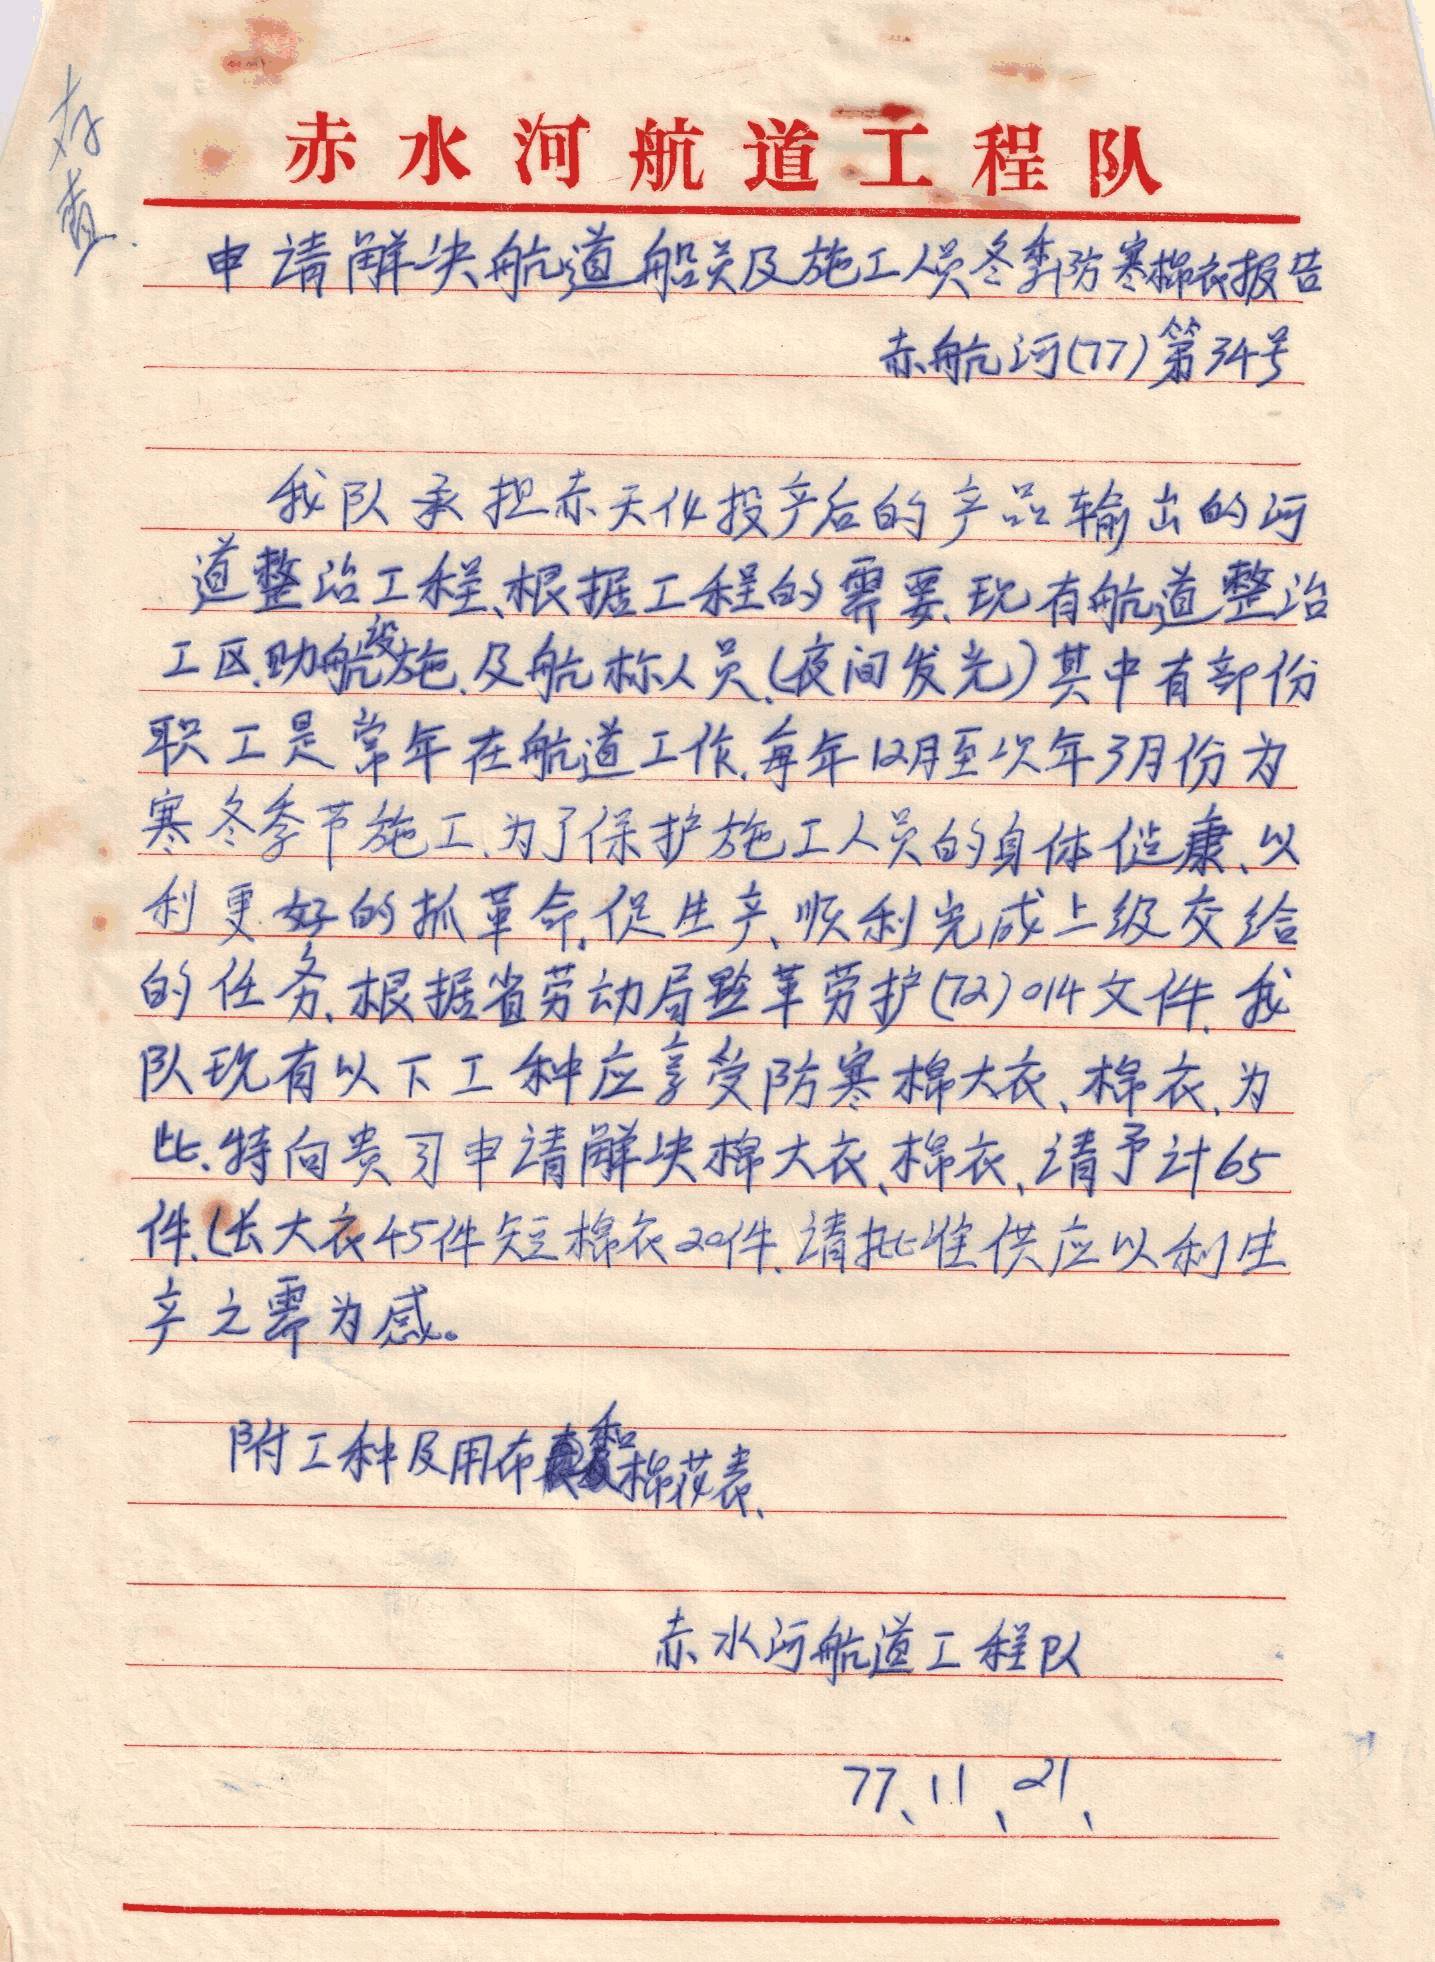 存查.
赤水河航道工程队
申请解决航道船员及施工人员冬季防寒棉衣报告
赤航河(77)第34号
我队承担赤天化投产后的产品输出的河
道整治工程、根据工程的需要、现有航道整治
工区、助航设施、及航标人员、(夜间发光)其中有部份
职工是常年在航道工作、每年12月至次年3月份为
寒冬季节施工、为了保护施工人员的身体健康、以
利更好的抓革命、促生产、顺利完成上级交给
的任务、根据省劳动局黔革劳护(72)014文件、我
队现有以下工种应享受防寒棉大衣、棉衣、为
此、特向贵司申请解决棉大衣、棉衣、请予计65
件、(长大衣45件短棉衣20件、请批准供应以利生
产之需为感。
附工种及用布和棉花表、
赤水河航道工程队
77、11、21、